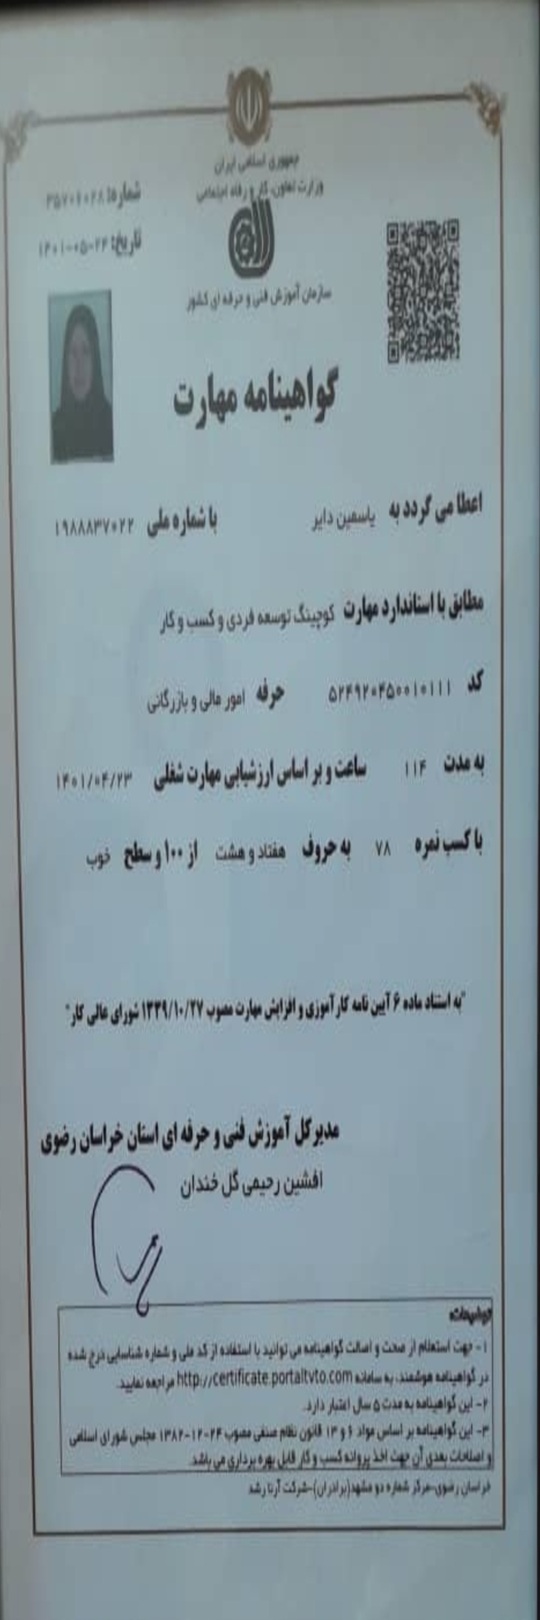 جمهوری اسلامی ایران
وزارت تعاون، کار و رفاه اجتماعی
شماره:
تاریخ: ۱۴۰۱-۰۵-۲۴
سازمان آموزش فنی و حرفه ای کشور
گواهینامه مهارت
اعطا می گردد به یاسمین دایر با شماره ملی ۱۹۸۸۸۳۷۰۲۲
مطابق با استاندارد مهارت کوچینگ توسعه فردی و کسب و کار
کد ۵۲۴۹۲۰۴۵۰۰۱۰۱۱۱ حرفه امور مالی و بازرگانی
به مدت ۱۱۴ ساعت و بر اساس ارزشیابی مهارت شغلی ۱۴۰۱/۰۴/۲۳
با کسب نمره ۷۸ به حروف هفتاد و هشت از ۱۰۰ و سطح خوب
"به استناد ماده ۶ آیین نامه کارآموزی و افزایش مهارت مصوب ۱۳۴۹/۱۰/۲۷ شورای عالی کار"
مدیرکل آموزش فنی و حرفه ای استان خراسان رضوی
افشین رحیمی گل خندان
توضیحات:
۱- جهت استعلام از صحت و اصالت گواهینامه می توانید با استفاده از کد ملی و شماره شناسایی درج شده
در گواهینامه هوشمند، به سامانه http://certificate.portaltvto.com مراجعه نمایید.
۲- این گواهینامه به مدت ۵ سال اعتبار دارد.
۳- این گواهینامه بر اساس مواد ۶ و ۱۳ قانون نظام صنفی مصوب ۲۴-۱۲-۱۳۸۲ مجلس شورای اسلامی
و اصلاحات بعدی آن جهت اخذ پروانه کسب و کار قابل بهره برداری می باشد.
خراسان رضوی-مرکز شماره دو مشهد(برادران)-شرکت آرتا رشد